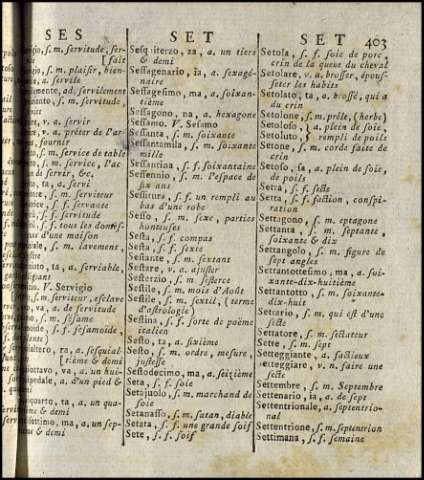 SES
SET
SET 403
servitude, ser-
[fait
s. m. plaisir, bien-
a. servile
ad. servilement
s. m. servitude,
v. a. servir
v. a. prêter de l'ar-
fournir
s. m. service de table
s. m. service, l'ac-
de servir, &c.
ta, a. servi
s. m. serviteur
s. f. servante
s. f. servitude
s. f. tous les domes-
d'une maison
s. m. lavement,
ta, a. serviable,
V. Servigio
s. m. serviteur, esclave
va, a. de servitude
s. m. sesame
s. f. sesamoide,
ra, a. sesquial-
[tère & demi
va, a. un hui-
a. d'un pied &
ta, a. un qua-
& demi
ma, a. un sep-
& demi
Sesquiterzo, za, a. un tiers
& demi
Sessagenario, ia, a. sexagé-
naire
Sessagesimo, ma, a. soixan-
tième
Sessagono, na, a. hexagone
Sessamo. V. Sesamo
Sessanta, s. m. soixante
Sessantamila, s. m. soixante
mille
Sessantina, s. f. soixantaine
Sessennio, s. m. l'espace de
six ans
Sessitura, s. f. un rempli au
bas d'une robe
Sesso, s. m. sexe, parties
honteuses
Sesta, s. f. compas
Sesta, s. f. sexte
Sestante, s. m. sextant
Sestare, v. a. ajuster
Sesterzio, s. m. sesterce
Sestile, s. m. mois d'Août
Sestile, s. m. sextil, (terme
d'astrologie)
Sestina, s. f. sorte de poëme
italien
Sesto, ta, a. sixième
Sesto, s. m. ordre, mesure,
justesse
Sestodecimo, ma, a. seizième
Seta, s. f. soie
Setajuolo, s. m. marchand de
soie
Setanasso, s. m. satan, diable
Setata, s. f. une grande soif
Sete, s. f. soif
Setola, s. f. soie de porc,
crin de la queue du cheval
Setolare, v. a. brosser, épous-
seter les habits
Setolato, ta, a. brossé, qui a
du crin
Setolone, s. m. prêle, (herbe)
Setoloso, a. plein de soie,
Setoluto, } rempli de poils
Setone, s. m. corde faite de
crin
Setoso, sa, a. plein de soie,
de poils
Setta, s. f. secte
Setta, s. f. faction, conspi-
ration
Settagono, s. m. eptagone
Settanta, s. m. septante,
soixante & dix
Settangolo, s. m. figure de
sept angles
Settantottesimo, ma, a. soi-
xante-dix-huitième
Settantotto, s. m. soixante-
dix-huit
Settario, s. m. qui est d'une
secte
Settatore, s. m. sectateur
Sette, s. m. sept
Setteggiante, a. factieux
Setteggiare, v. n. faire une
secte
Settembre, s. m. Septembre
Settenario, ia, a. de sept
Settentrionale, a. septentrio-
nal
Settentrione, s. m. septentrion
Settimana, s. f. semaine